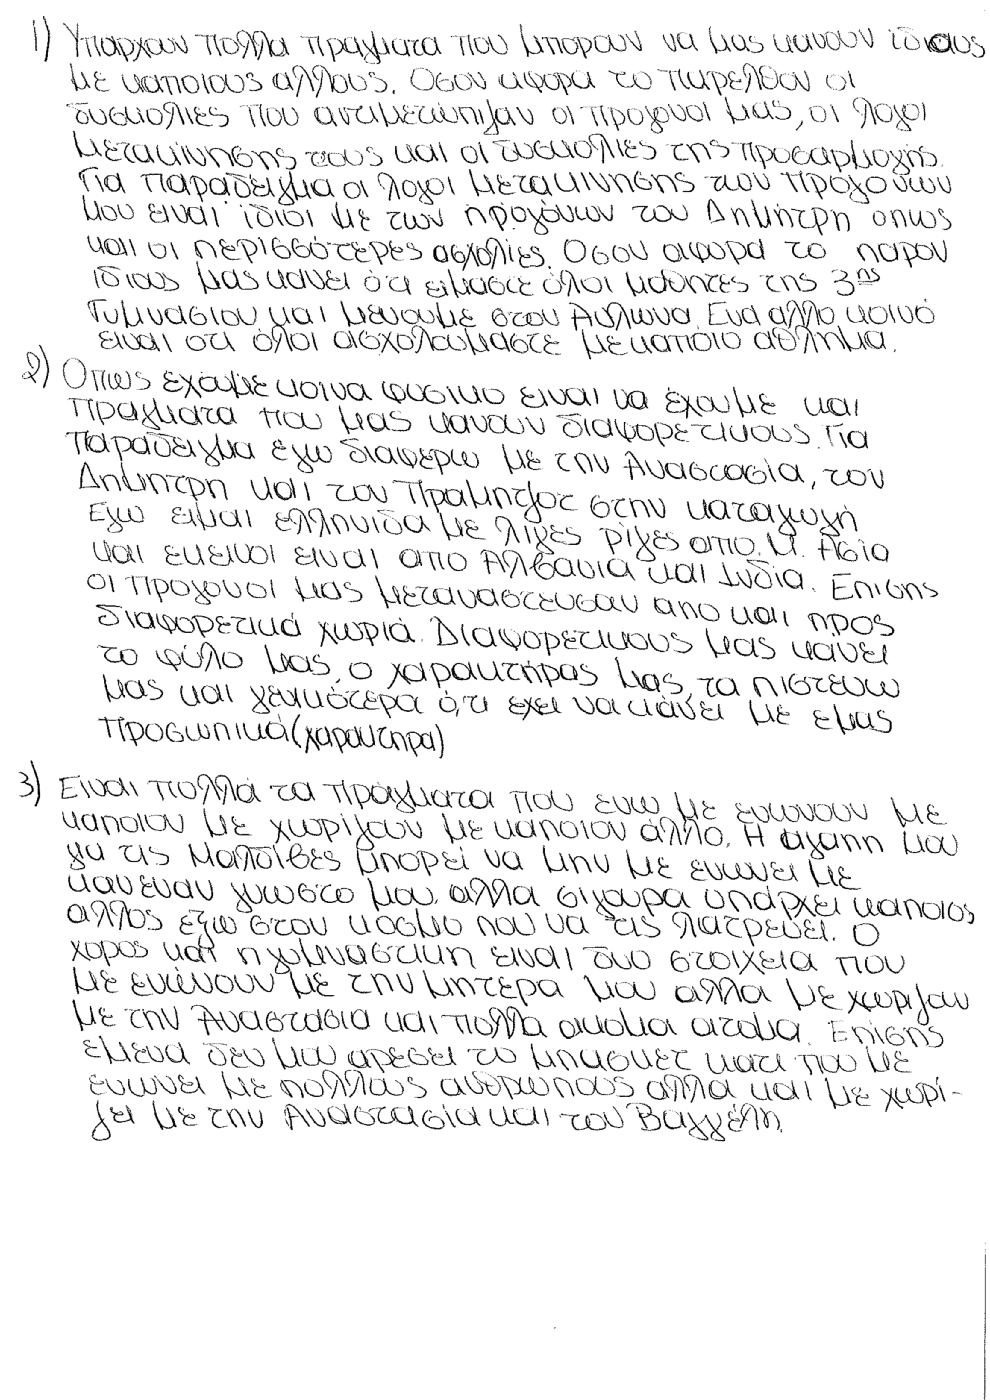 1) Υπαρχουν πολλα πραγματα που μπορουν να μας κανουν ίδιους
με καποιους αλλους. Οσον αφορα το παρελθον οι
δυσκολιες που αντιμετώπιζαν οι προγονοι μας, οι λογοι
μετακίνησης τους και οι δυσκολιες της προσαρμογής.
Για παραδειγμα οι λογοι μετακινησης των προγονων
μου ειναι ίδιοι με των προγόνων του Δημητρη οπως
και οι περισσότερες ασχολίες. Οσον αφορα το παρον
ιδιους μας κανει ότι ειμαστε όλοι μαθητες της 3ης
Γυμνασιου και μενουμε στον Αυλωνα. Ενα αλλο κοινό
ειναι οτι όλοι ασχολουμαστε με καποιο αθλημα.
2) Οπως εχουμε κοινα φυσικο ειναι να έχουμε και
πραγματα που μας κανουν διαφορετικους. Για
παραδειγμα εγω διαφερω με την Αναστασία, τον
Δημητρη και τον Πραμητζοτ στην καταγωγή
Εγω ειμαι ελληνιδα με λιγες ρίζες απο Μ. Ασία
και εκεινοι ειναι απο Αλβανια και Ινδια. Επισης
οι προγονοι μας μεταναστευσαν απο και προς
διαφορετικά χωριά. Διαφορετικους μας κάνει
το φύλο μας, ο χαρακτήρας μας, τα πιστευω
μας και γενικότερα ό,τι εχει να κάνει με εμας
προσωπικά (χαρακτηρα)
3) Ειναι πολλά τα πράγματα που ενω με ενωνουν με
καποιον με χωρίζουν με καποιον άλλο. Η αγαπη μου
για τις Μαλδίβες μπορεί να μην με ενωνει με
κανεναν γνωστο μου, αλλα σιγουρα υπάρχει καποιος
αλλος εξω στον κοσμο που να τις λατρεύει. Ο
χορος και η γυμναστικη ειναι δυο στοιχεια που
με ενώνουν με την μητερα μου αλλα με χωριζουν
με την Αναστασια και πολλα ακομα ατομα. Επίσης
εμενα δεν μου αρεσει το μπασκετ κατι που με
ενωνει με πολλους ανθρωπους αλλα και με χωρί-
ζει με την Αναστασία και τον Βαγγέλη.